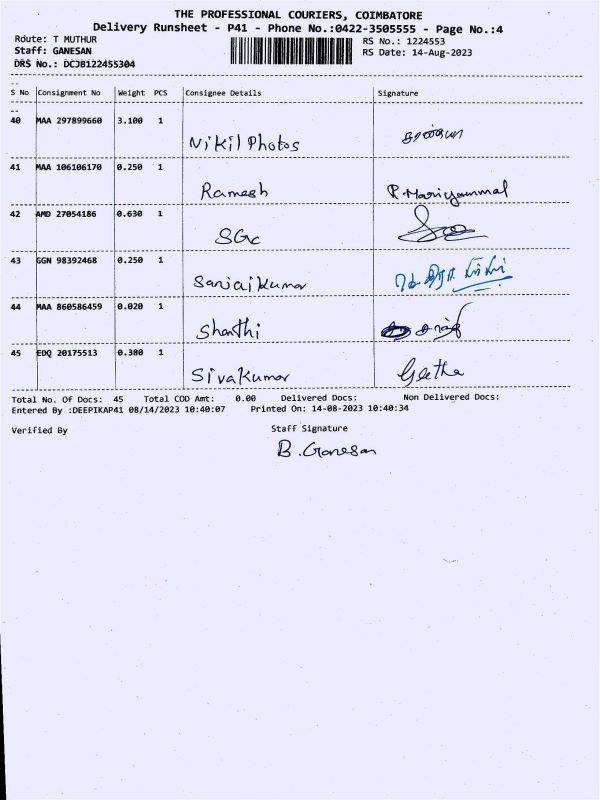 THE PROFESSIONAL COURIERS, COIMBATORE
Delivery Runsheet - P41 - Phone No.:0422-3505555 - Page No.:4
Route: T MUTHUR RS No.: 1224553
Staff: GANESAN RS Date: 14-Aug-2023
DRS No.: DCJB122455304
S No Consignment No Weight PCS Consignee Details Signature
40 MAA 297899660 3.100 1
Nikil Photos
41 MAA 106106170 0.250 1
Ramesh R.Mariyammal
42 AMD 27054186 0.630 1
SGC
43 GGN 98392468 0.250 1
Sanjaikumar
44 MAA 860586459 0.020 1
Shanthi
45 EDQ 20175513 0.380 1
Sivakumar Geetha
Total No. Of Docs: 45 Total COD Amt: 0.00 Delivered Docs: Non Delivered Docs:
Entered By :DEEPIKAP41 08/14/2023 10:40:07 Printed On: 14-08-2023 10:40:34
Verified By Staff Signature
B.Ganesan